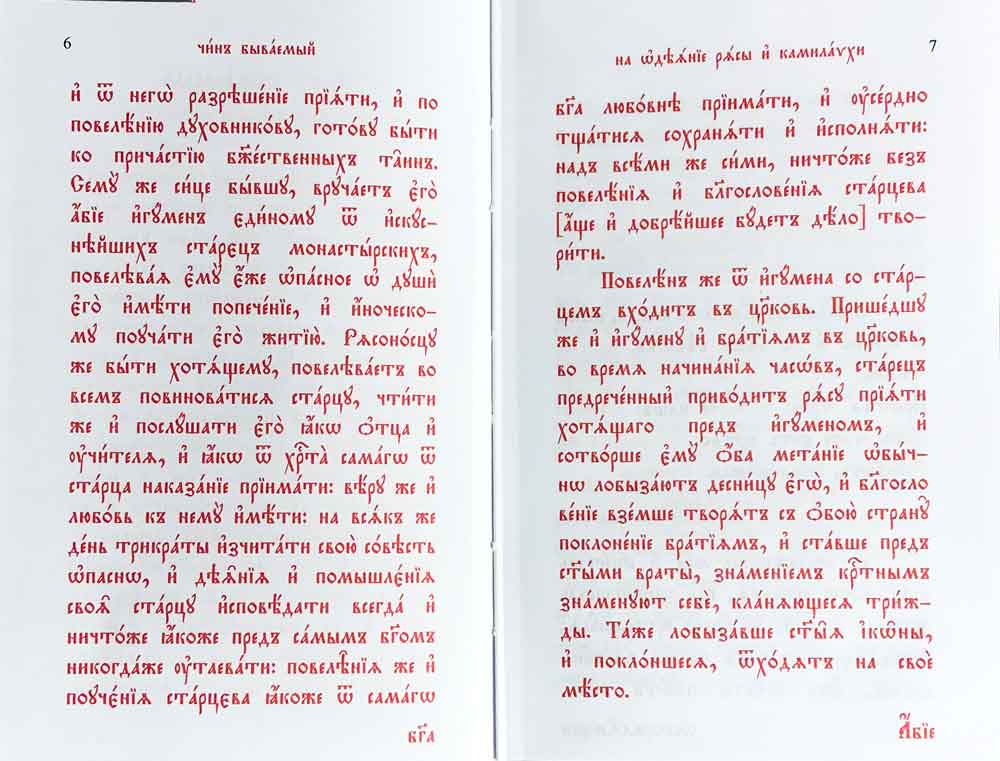 6
чи́нъ быва́емый
и҆ ѿ негѡ̀ разрѣше́нїе прїѧ́ти, и҆ по
повелѣ́нїю дꙋхо́вникову, гото́вꙋ бы́ти
ко прича́стїю бж҃е́ственныхъ та̑инъ.
Семꙋ́ же си́це бы́вшꙋ, врꙋча́етъ є҆го̀
а҆́бїе и҆гꙋ́менъ є҆ди́номꙋ ѿ и҆скꙋс-
нѣ́йшихъ ста́рєцъ монасты́рскихъ,
повелѣва́ѧ є҆мꙋ̀ є҆́же ѡ҆па́сное ѡ҆ дꙋшѝ
є҆гѡ̀ и҆мѣ́ти попече́нїе, и҆ и҆́ноческо-
мꙋ поꙋча́ти є҆го̀ житїю̀. Рѧсоно́сцꙋ
же бы́ти хотѧ́щемꙋ, повелѣва́етъ во
всемъ повинова́тисѧ ста́рцꙋ, чти́ти
же и҆ послꙋ́шати є҆го̀ ꙗ҆́кѡ ѻ҆тца̀ и҆
ᲂу҆чи́телѧ, и҆ ꙗ҆́кѡ ѿ хрⷭ҇та̀ самагѡ̀ ѿ
ста́рца наказа́нїе прїима́ти: вѣ́рꙋ же и҆
любо́вь къ немꙋ̀ и҆мѣ́ти: на всѧ́къ же
де́нь трикра́ты и҆зчита́ти свою̀ со́вѣсть
ѡ҆па́снѡ, и҆ дѣѧ̑нїѧ и҆ помышлє́нїѧ
своѧ̑ ста́рцꙋ и҆сповѣ́дати всегда̀ и҆
ничто́же ꙗ҆́коже предъ са́мымъ бг҃омъ
никогда́же ᲂу҆таева́ти: повелѣ̑нїѧ же и҆
поꙋчє́нїѧ ста́рцева ꙗ҆́коже ѿ самагѡ̀
бг҃а
на ѡ҆дѣѧ́нїе рѧ́сы и҆ камила́ѵхи
7
бг҃а любо́внѣ прїима́ти, и҆ ᲂу҆се́рдно
тща́тисѧ сохранѧ́ти и҆ и҆сполнѧ́ти:
надъ всѣ́ми же си́ми, ничто́же безъ
повелѣ́нїѧ и҆ блгⷭ҇ове́нїѧ ста́рцева
[а҆́ще и҆ добрѣ́йшее бꙋ́детъ дѣ́ло] тво-
ри́ти.
Повелѣ́нъ же ѿ и҆гꙋ́мена со ста́р-
цемъ вхо́дитъ въ цр҃ковь. Прише́дшꙋ
же и҆ и҆гꙋ́менꙋ и҆ бра́тїѧмъ въ цр҃ковь,
во времѧ начина́нїѧ часѡ́въ, ста́рецъ
предрече́нный приво́дитъ рѧ́сꙋ прїѧ́ти
хотѧ́щаго предъ и҆гꙋ́меномъ, и҆
сотво́рше є҆мꙋ̀ ѻ҆́ба мета́нїе ѡ҆бы́ч-
нѡ лобыза́ютъ десни́цꙋ є҆гѡ̀, и҆ блгⷭ҇осло
ве́нїе взе́мше творѧ́тъ съ ѻ҆бою̀ странꙋ̀
поклоне́нїе бра́тїѧмъ, и҆ ста́вше предъ
ст҃ы́ми враты̀, зна́менїемъ крⷭ҇тнымъ
зна́менꙋютъ себѐ, кла́нѧющесѧ три́ж-
ды. Та́же лобыза́вше ст҃ы̑ѧ і҆кѡ́ны,
и҆ покло́ншесѧ, ѿхо́дѧтъ на своѐ
мѣ́сто.
А҆́бїе